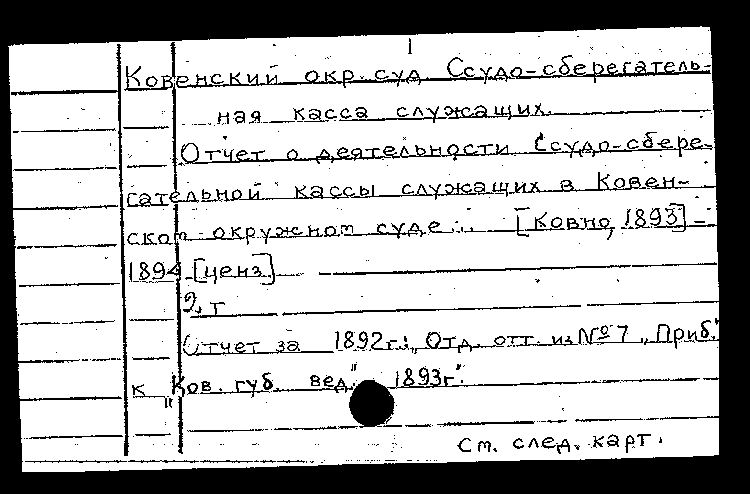 Ковенский окр. суд. Ссудо-сберегатель-
ная касса служащих.
Отчет о деятельности Ссудо-сбере-
гательной кассы служащих в Ковен-
ском окружном суде... [Ковно, 1893] -
1894 [ценз.]
2 т
Отчет за 1892г.: „Отд. отт. из № 7 „Приб."
к „Ков. губ. вед." 1893г".
См. след. карт.